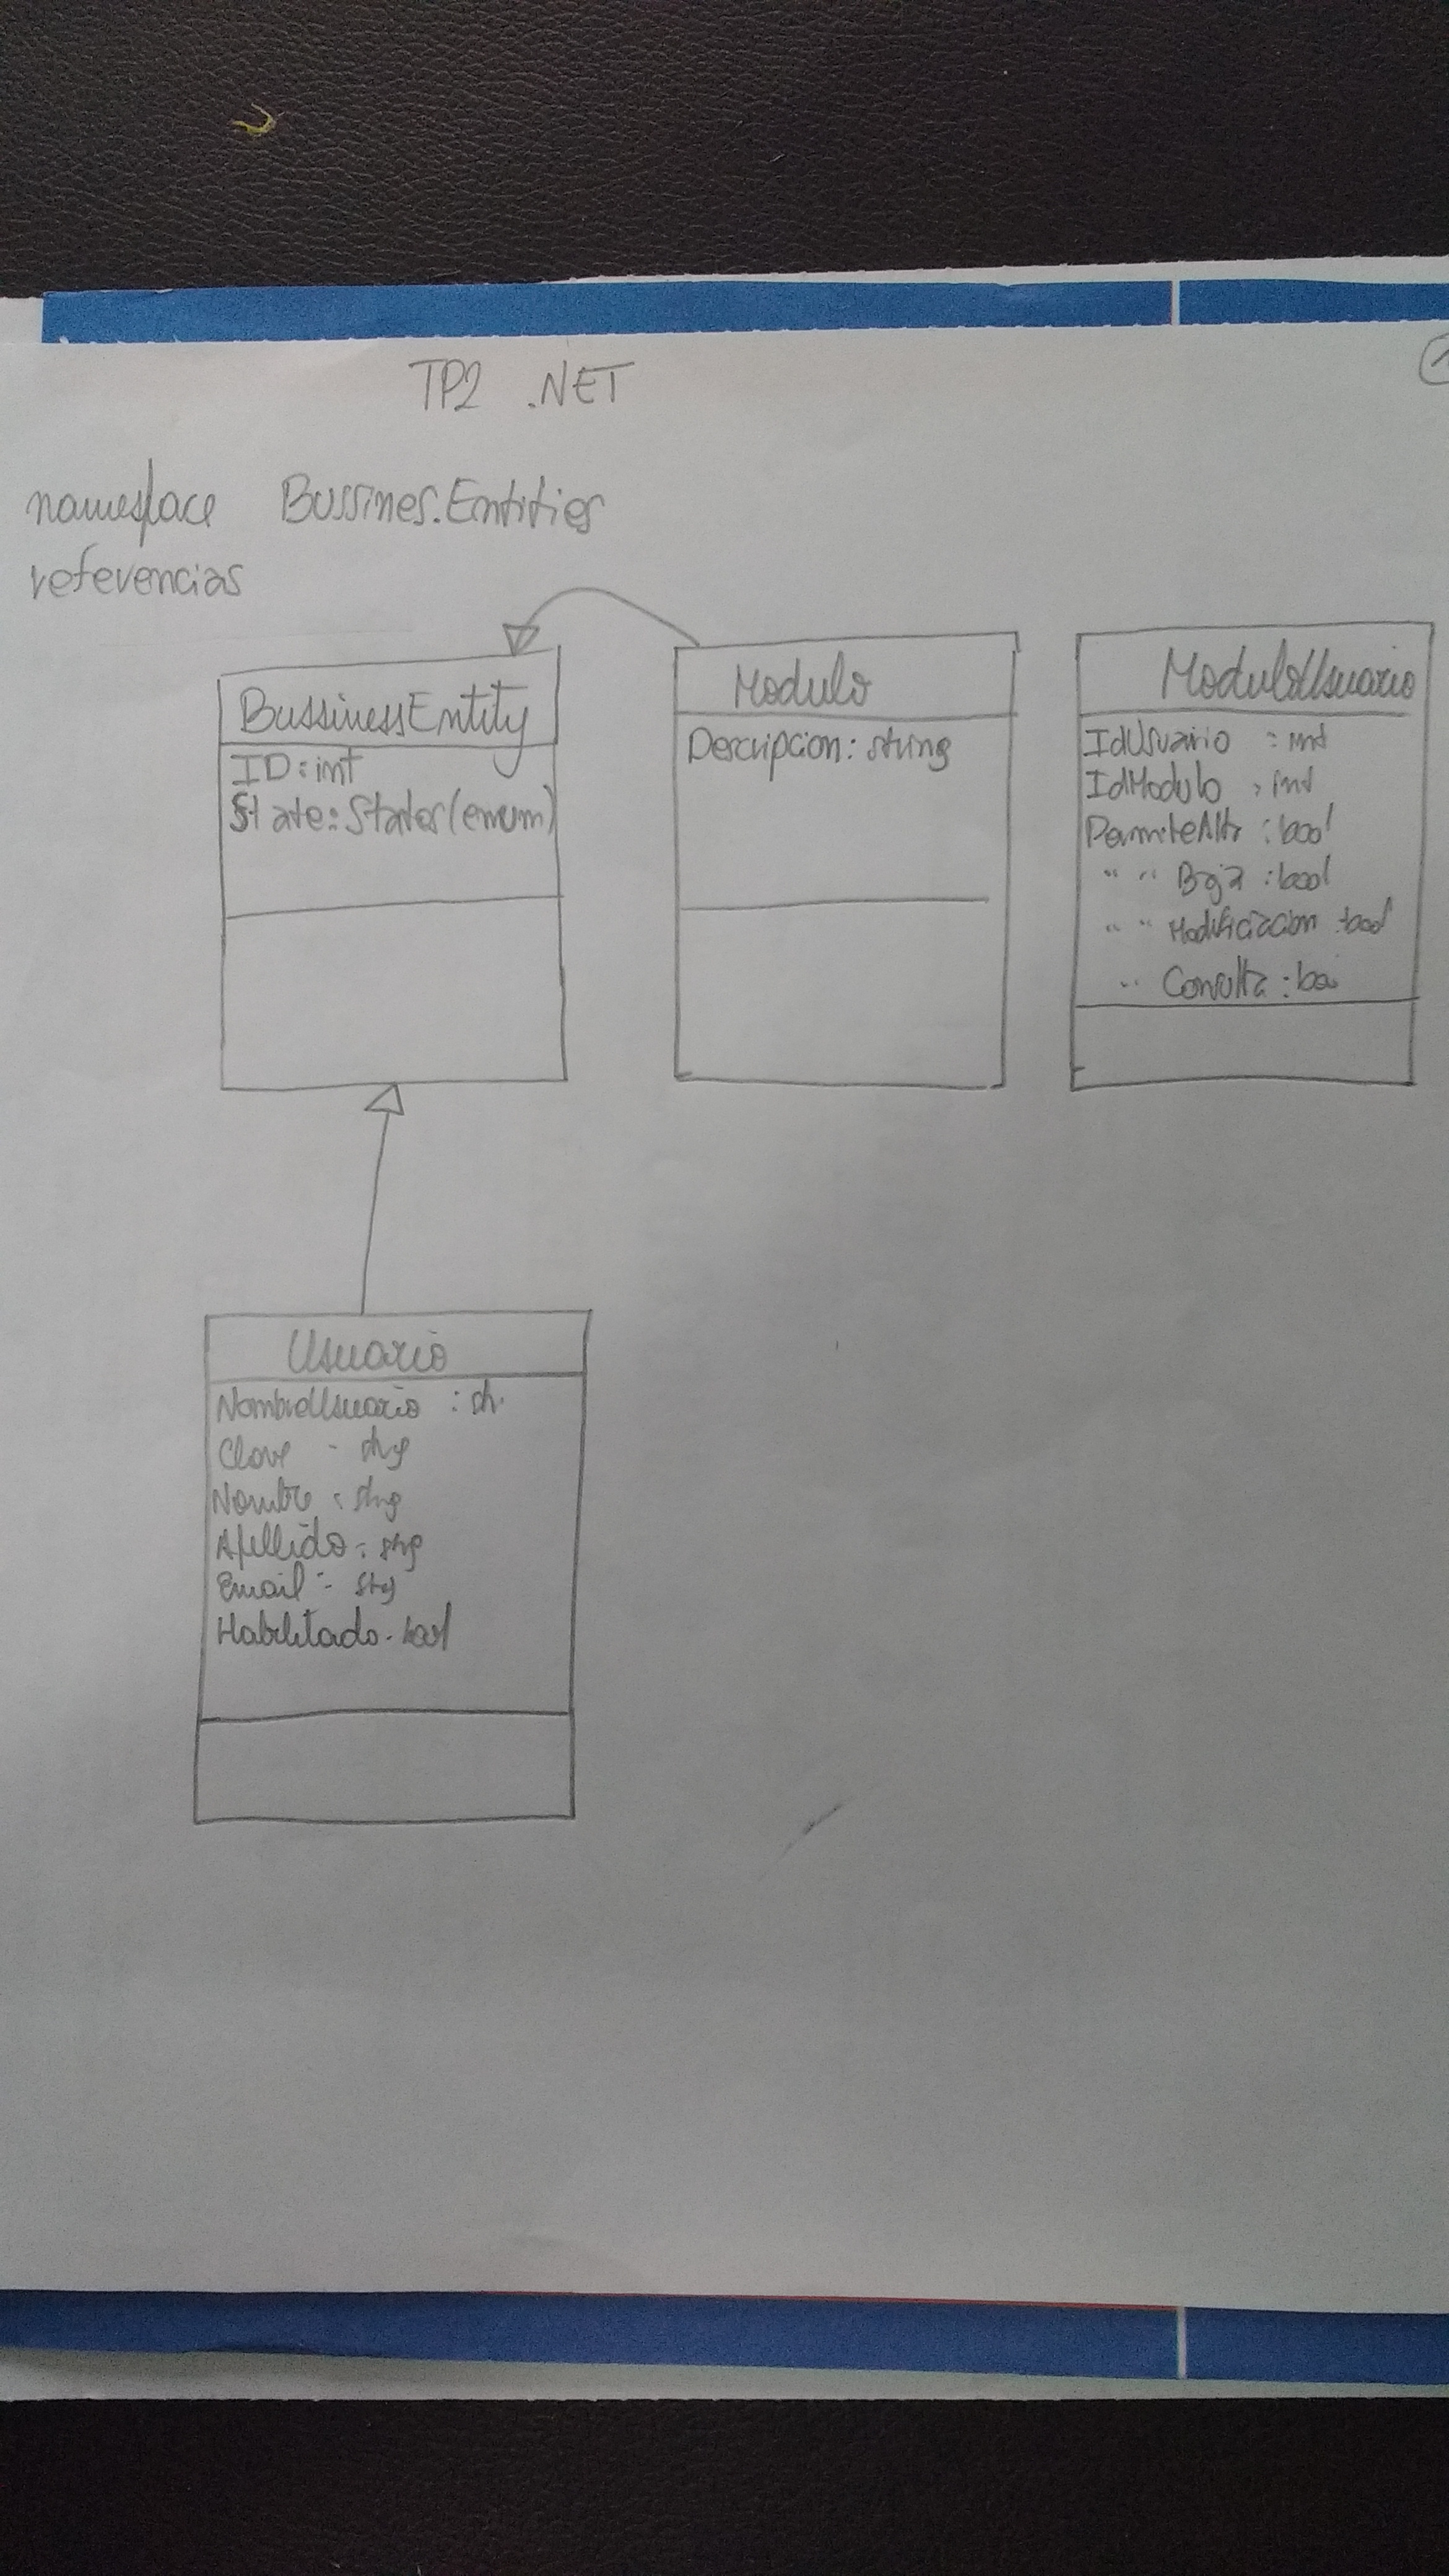 TP2 .NET
1
namespace Bussines.Entities
referencias
BussinessEntity
ID: int
State: States (enum)
Modulo
Descripcion: string
ModuloUsuario
IdUsuario : int
IdModulo : int
PermiteAlta : bool
" " Baja : bool
" " Modificiacion : bool
" Consulta : boo
Usuario
NombreUsuario : str
Clave - strg
Nombre : strg
Apellido : strg
Email - strg
Habilitado - bool